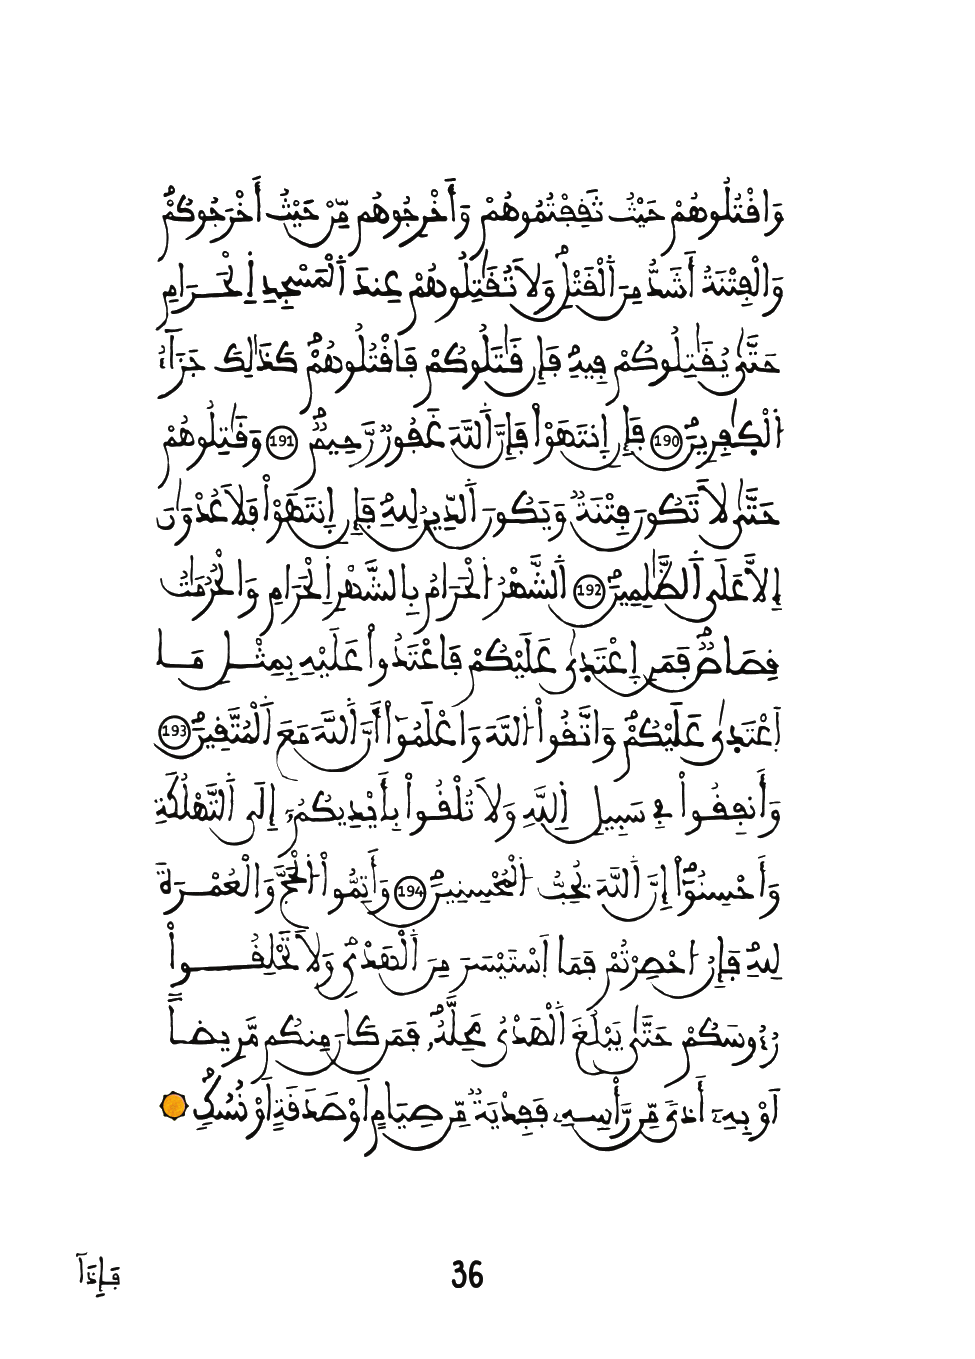 وَاقْتُلُوهُمْ حَيْثُ ثَقِفْتُمُوهُمْ وَأَخْرِجُوهُم مِّنْ حَيْثُ أَخْرَجُوكُمْ
وَالْفِتْنَةُ أَشَدُّ مِنَ اَلْقَتْلِ وَلَا تُقَٰتِلُوهُمْ عِندَ اَلْمَسْجِدِ اِلْحَرَامِ
حَتَّىٰ يُقَٰتِلُوكُمْ فِيهِ فَإِن قَٰتَلُوكُمْ فَاقْتُلُوهُمْ كَذَٰلِكَ جَزَآءُ
اُلْكَٰفِرِينَ 190 فَإِنِ اِنتَهَوْاْ فَإِنَّ اَللَّهَ غَفُورٌ رَّحِيمٌ 191 وَقَٰتِلُوهُمْ
حَتَّىٰ لَا تَكُونَ فِتْنَةٌ وَيَكُونَ اَلدِّينُ لِلهِ فَإِنِ اِنتَهَوْاْ فَلَا عُدْوَٰنَ
إِلَّا عَلَى اَلظَّٰلِمِينَ 192 اَلشَّهْرُ اُلْحَرَامُ بِالشَّهْرِ اِلْحَرَامِ وَالْحُرُمَٰتُ
قِصَاصٌ فَمَنِ اِعْتَدِىٰ عَلَيْكُمْ فَاعْتَدُواْ عَلَيْهِ بِمِثْلِ مَا
اَعْتَدِىٰ عَلَيْكُمْ وَاتَّقُواْ اُللَّهَ وَاعْلَمُوٓاْ أَنَّ اَللَّهَ مَعَ اَلْمُتَّقِينَ 193
وَأَنفِقُواْ فِي سَبِيلِ اِللَّهِ وَلَا تُلْقُواْ بِأَيْدِيكُمْ إِلَى اَلتَّهْلُكَةِ
وَأَحْسِنُوٓاْ إِنَّ اَللَّهَ يُحِبُّ اُلْمُحْسِنِينَ 194 وَأَتِمُّواْ اُلْحَجَّ وَالْعُمْرَةَ
لِلهِ فَإِنُ احْصِرْتُمْ فَمَا اَسْتَيْسَرَ مِنَ اَلْهَدْيِ وَلَا تَحْلِقُواْ
رُءُوسَكُمْ حَتَّىٰ يَبْلُغَ اَلْهَدْيُ مَحِلَّهُۥ فَمَن كَانَ مِنكُم مَّرِيضاً
اَوْ بِهِۦٓ أَذىً مِّن رَّأْسِهِۦ فَفِدْيَةٌ مِّن صِيَامٍ اَوْ صَدَقَةٍ اَوْ نُسُكٍ
فَإِذَآ
36